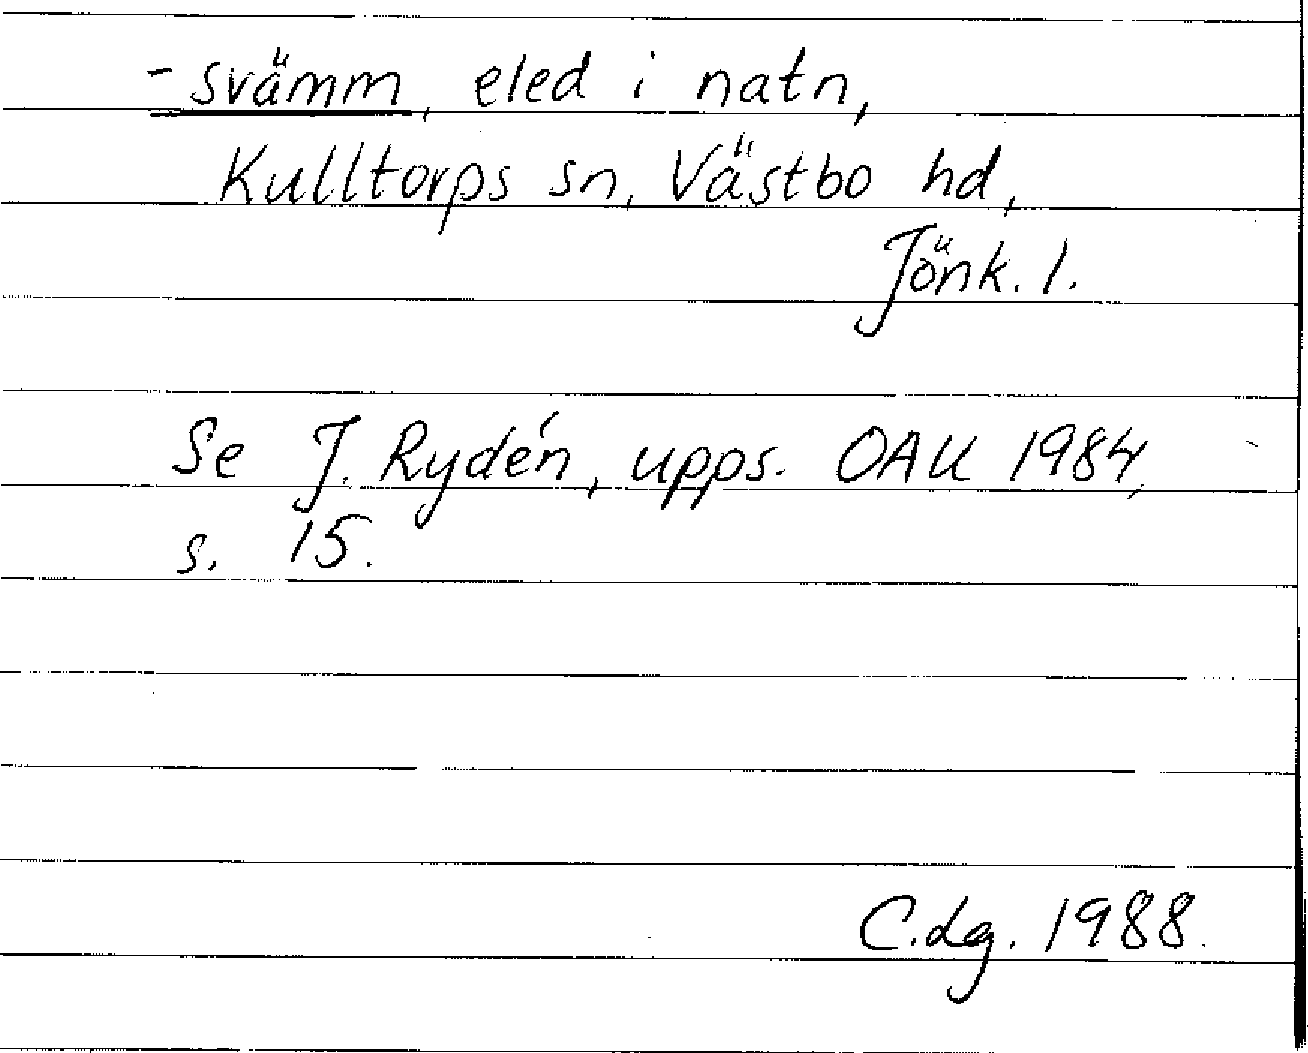 -svämm, eled i natn,
Kulltorps sn, Västbo hd,
Jönk. l.
Se J. Rydén, upps. OAU 1984,
s. 15.
C.dg. 1988.